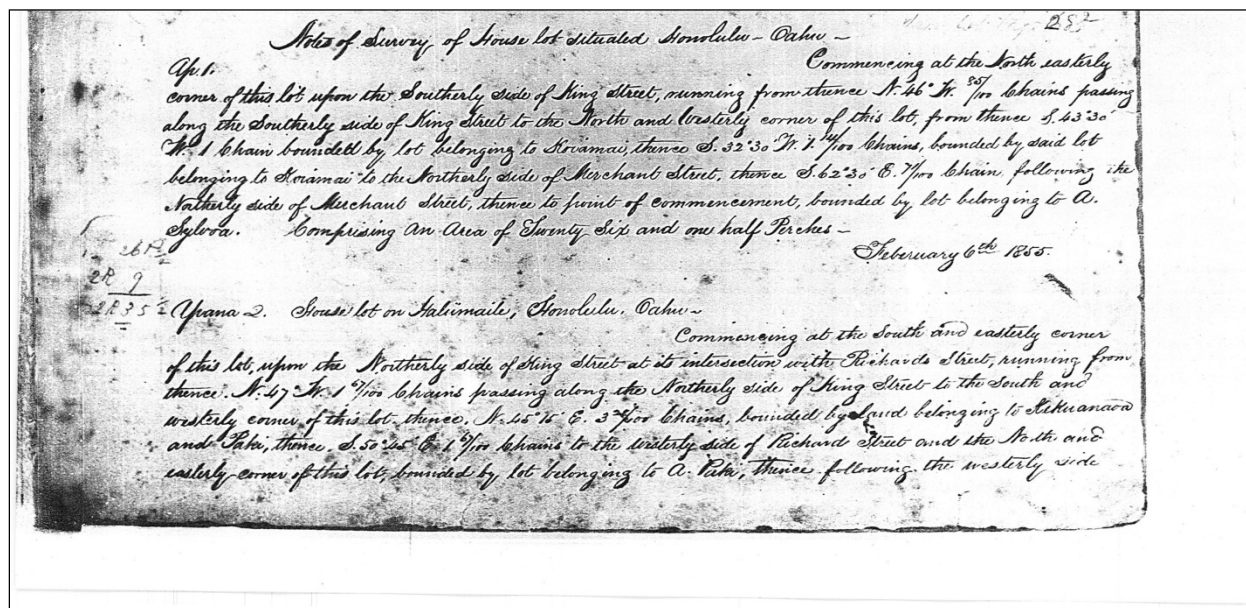 282
Notes of Survey of House lot situated Honolulu - Oahu -
Ap. 1. Commencing at the North easterly
corner of this lot upon the Southerly side of King Street, running from thence N. 46° W. 95/100 Chains passing
along the Southerly side of King Street to the North and Westerly corner of this lot, from thence S. 43°30'
W. 1 Chain bounded by lot belonging to Koiamai, thence S. 32°30' W. 1 14/100 Chains, bounded by said lot
belonging to Koiamai to the Northerly side of Merchant Street, thence S. 62°30' E. 71/100 Chain, following the
Northerly side of Merchant Street, thence to point of commencement, bounded by lot belonging to A.
Sylvoa. Comprising An Area of Twenty Six and one half Perches -
Feberuary 6th 1855.
26 1/2
2R 9
2R 35 1/2
Apana 2. House lot on Haliimaile, Honolulu. Oahu -
Commencing at the South and easterly corner
of this lot, upon the Northerly side of King Street at its intersection with Richards Street, running from
thence N. 47° W. 1 67/100 Chains passing along the Northerly side of King Street to the South and
westerly corner of this lot thence. N. 45°15' E. 3 Chains, bounded by Land belonging to Kekuanaoa
and Paki, thence S. 50°45' E. 1 Chains to the westerly side of Richard Street and the North and
easterly corner of this lot, bounded by lot belonging to A. Paki, thence following the westerly side